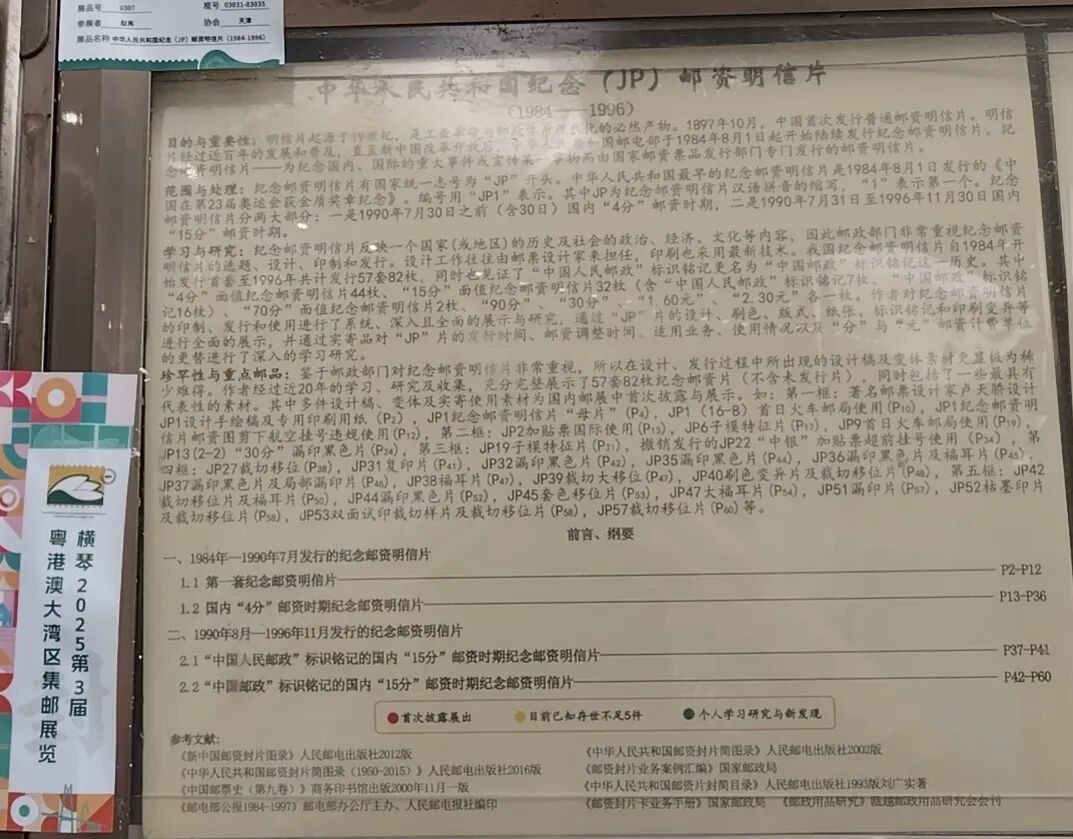 展品号 0307 框号 03031-03035
参展者 赵亮 协会 天津
展品名称 中华人民共和国纪念（JP）邮资明信片（1984-1996）
中华人民共和国纪念（JP）邮资明信片
（1984——1996）
目的与重要性：明信片起源于19世纪，是工业革命与邮政 化的必然产物。1897年10月，中国首次发行普通邮资明信片。明信
片经过近百年的发展和普及，直至新中国改革开放后， 和国邮电部于1984年8月1日起开始陆续发行纪念邮资明信片。纪
念邮资明信片——为纪念国内、国际的重大事件或宣传某一事物而由国家邮资票品发行部门专门发行的邮资明信片。
范围与处理：纪念邮资明信片有国家统一志号为“JP”开头。中华人民共和国最早的纪念邮资明信片是1984年8月1日发行的《中
国在第23届奥运会获金质奖章纪念》。编号用“JP1”表示。其中JP为纪念邮资明信片汉语拼音的缩写，“1”表示第一个。纪念
邮资明信片分两大部分：一是1990年7月30日之前（含30日）国内“4分”邮资时期，二是1990年7月31日至1996年11月30日国内
“15分”邮资时期。
学习与研究：纪念邮资明信片反映一个国家(或地区)的历史及社会的政治、经济、文化等内容，因此邮政部门非常重视纪念邮资
明信片的选题、设计、印制和发行。设计工作往往由邮票设计家来担任，印刷也采用最新技术。我国纪念邮资明信片自1984年开
始发行首套至1996年共计发行57套82枚，同时也见证了“中国人民邮政”标识铭记更名为“中国邮政”标识铭记这一历史。其中
“4分”面值纪念邮资明信片44枚、“15分”面值纪念邮资明信片32枚（含“中国人民邮政”标识铭记7枚、“中国邮政”标识铭
记16枚）、“70分”面值纪念邮资明信片2枚、“90分”、“30分”、“1.60元”、“2.30元”各一枚。作者对纪念邮资明信片
的印制、发行和使用进行了系统、深入且全面的展示与研究，通过“JP”片的设计、刷色、版式、纸张、标识铭记和印刷变异等
进行全面的展示，并通过实寄品对“JP”片的发行时间、邮资调整时间、适用业务、使用情况以及“分”与“元”邮资计费单位
的更替进行了深入的学习研究。
珍罕性与重点邮品：鉴于邮政部门对纪念邮资明信片非常重视，所以在设计、发行过程中所出现的设计稿及变体素材更显极为稀
少难得。作者经过近20年的学习、研究及收集，充分完整展示了57套82枚纪念邮资片（不含未发行片），同时包括了一些最具有
代表性的素材。其中多件设计稿、变体及实寄使用素材为国内邮展中首次披露与展示。如：第一框：著名邮票设计家卢天骄设计
JP1设计手绘稿及专用印刷用纸（P2），JP1纪念邮资明信片“母片”(P4)，JP1（16-8）首日火车邮局使用(P10)，JP1纪念邮资明
信片邮资图剪下航空挂号违规使用(P12)，第二框：JP2加贴票国际使用(P13)，JP6子模特征片(P17)，JP9首日火车邮局使用(P19)，
JP13(2-2)“30分”漏印黑色片(P24)，第三框：JP19子模特征片(P31)，撤销发行的JP22“中银”加贴票超前挂号使用（P34），第
四框：JP27裁切移位(P38)，JP31复印片(P41)，JP32漏印黑色片(P42)，JP35漏印黑色片(P44)，JP36漏印黑色片及福耳片(P45)，
JP37漏印黑色片及局部漏印片(P46)，JP38福耳片(P47)，JP39裁切大移位(P47)，JP40刷色变异片及裁切移位片(P48)，第五框：JP42
裁切移位片及福耳片(P50)，JP44漏印黑色片(P52)，JP45套色移位片(P53)，JP47大福耳片(P54)，JP51漏印片(P57)，JP52枯墨印片
及裁切移位片(P58)，JP53双面试印裁切样片及裁切移位片(P58)，JP57裁切移位片(P60)等。
前言、纲要
一、1984年—1990年7月发行的纪念邮资明信片
1.1 第一套纪念邮资明信片 P2-P12
1.2 国内“4分”邮资时期纪念邮资明信片 P13-P36
二、1990年8月—1996年11月发行的纪念邮资明信片
2.1“中国人民邮政”标识铭记的国内“15分”邮资时期纪念邮资明信片 P37-P41
2.2“中国邮政”标识铭记的国内“15分”邮资时期纪念邮资明信片 P42-P60
首次披露展出 目前已知存世不足5件 个人学习研究与新发现
参考文献：
《新中国邮资封片图录》人民邮电出版社2012版 《中华人民共和国邮资封片简图录》人民邮电出版社2002版
《中华人民共和国邮资封片简图录（1950-2015）》人民邮电出版社2016版 《邮资封片业务案例汇编》国家邮政局
《中国邮票史（第九卷）》商务印书馆出版2000年11月一版 《中华人民共和国邮资片封简目录》人民邮电出版社1993版刘广实著
《邮电部公报1984-1997》邮电部办公厅主办、人民邮电报社编印 《邮资封片卡业务手册》国家邮政局 《邮政用品研究》瓯越邮政用品研究会会刊
横琴2025第3届
粤港澳大湾区集邮展览